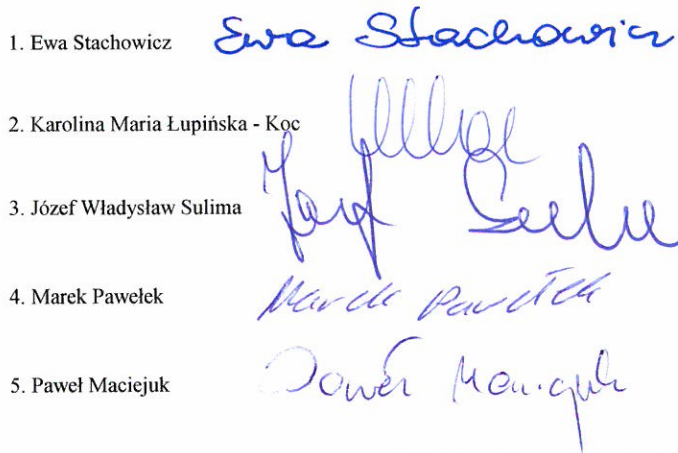 1. Ewa Stachowicz Ewa Stachowicz
2. Karolina Maria Łupińska - Koc
3. Józef Władysław Sulima Józef Sulima
4. Marek Pawełek Marek Pawełek
5. Paweł Maciejuk Paweł Maciejuk